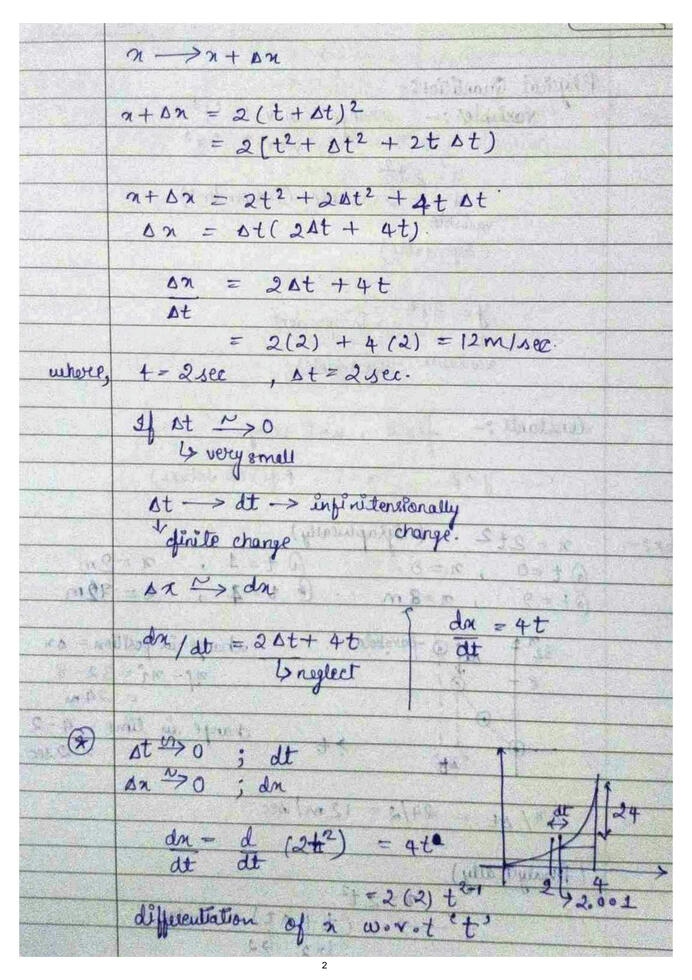 x ⟶ x + Δx
x + Δx = 2(t + Δt)²
= 2[t² + Δt² + 2t Δt)
x + Δx = 2t² + 2Δt² + 4t Δt
Δx = Δt(2Δt + 4t)
Δx/Δt = 2Δt + 4t
= 2(2) + 4(2) = 12m/sec.
where, t = 2sec , Δt = 2sec.
If Δt ~→ 0
↳ very small
Δt ⟶ dt → infinitensionally
↓ finite change change.
Δx ~→ dx
dx/dt = 2Δt + 4t
↳ neglect
dx/dt = 4t
* Δt ~→ 0 ; dt
Δx ~→ 0 ; dx
dx/dt = d/dt (2t²) = 4t
= 2(2) t²⁻¹
differentiation of x w.r.t 't'
dt
24
2 4
→ 2.001
2